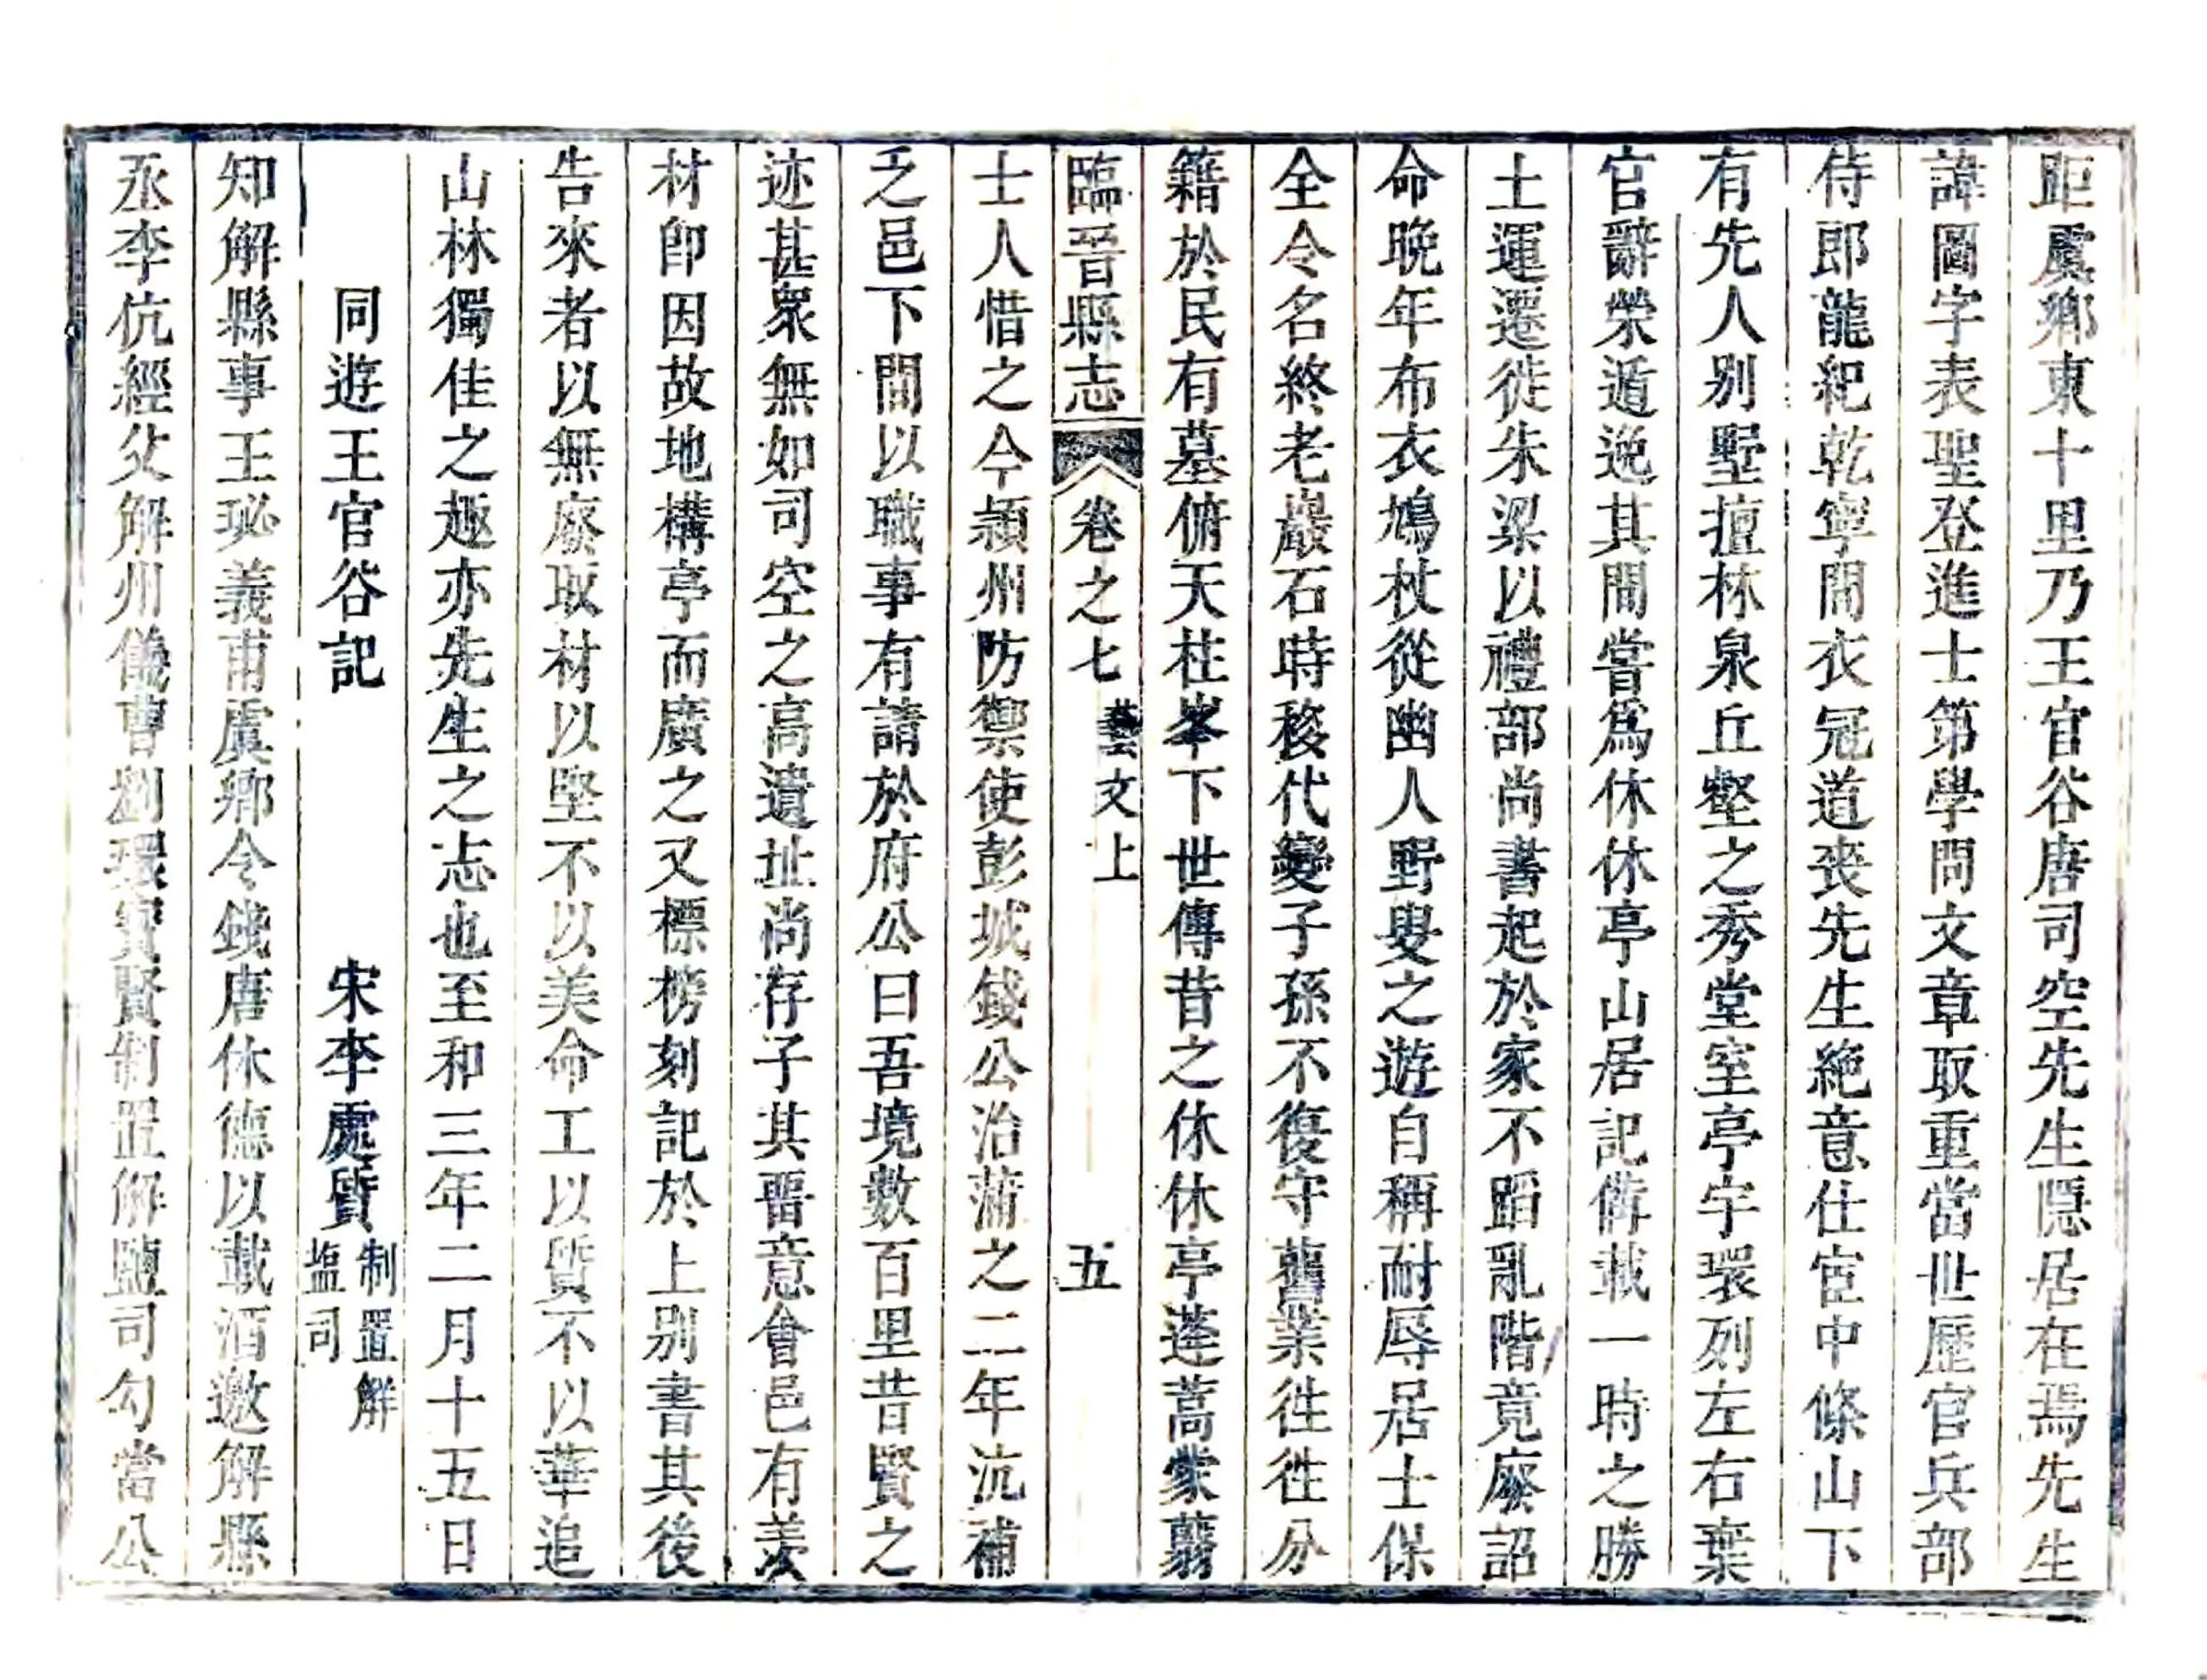 距虞鄉東十里乃王官谷唐司空先生隱居在焉先生
諱圖字表聖登進士第學問文章取重當世歷官兵部
侍郎龍紀乾寧間衣冠道喪先生絶意仕宦中條山下
有先人别墅擅林泉丘壑之秀堂室亭宇環列左右葉
官辭榮遁逸其間嘗爲休休亭山居記備載一時之勝
土運遷徙朱梁以禮部尚書起於家不蹈亂階竟廢詔
命晚年布衣鳩杖從幽人野叟之遊自稱耐辱居士保
全令名終老巖石時移代變子孫不復守舊業徃徃分
籍於民有墓俯天柱峯下世傳昔之休休亭蓬蒿蒙翳
臨晉縣志 卷之七 藝文上 五
士人惜之今潁州防禦使彭城錢公治蒲之二年沆補
乏邑下間以職事有請於府公曰吾境數百里昔賢之
迹甚衆無如司空之高遺址尚存子其畱意會邑有羡
材卽因故地構亭而廣之又標榜刻記於上别書其後
告來者以無廢取材以堅不以美命工以質不以華追
山林獨佳之趣亦先生之志也至和三年二月十五日
同遊王官谷記 宋李處質 制置解塩司
知解縣事王珌義甫虞鄉令錢唐休德以載酒邀解縣
丞李伉經父解州儀曹劉環寳賢制置解鹽司勾當公